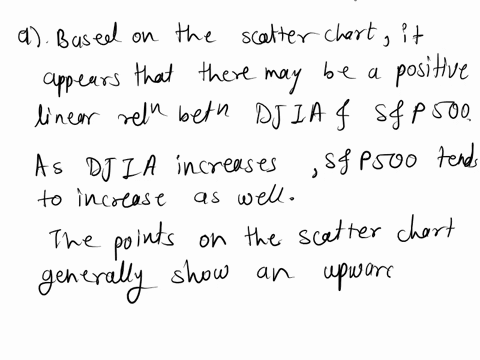 a). Based on the scatter chart, it
appears that there may be a positive
linear relⁿ betⁿ DJIA & S&P 500.
As DJIA increases, S&P500 tends
to increase as well.
The points on the scatter chart
generally show an upwarc